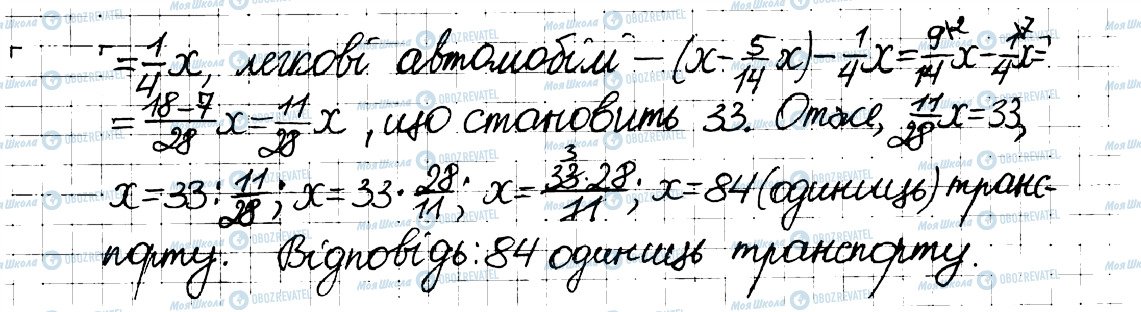 = 1/4 x, легкові автомобілі – (x - 5/14 x) - 1/4 x = 9^\2/14 x - 1^\7/4 x =
= (18-7)/28 x = 11/28 x, що становить 33. Отже, 11/28 x = 33,
x = 33 : 11/28; x = 33 · 28/11; x = (33 · 28)/11; 3 x = 84 (одиниць) транс-
порту. Відповідь: 84 одиниць транспорту.